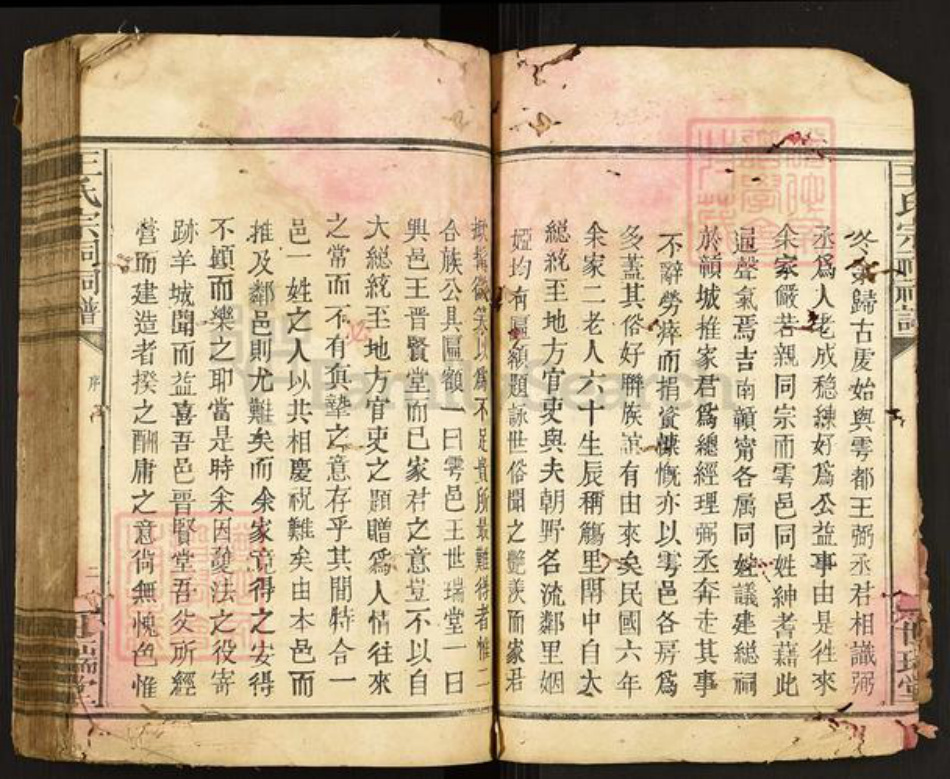 冬余歸古虔始與雩都王弼丞君相識弼
丞爲人老成穩練好爲公益事由是徃來
余家儼若親同宗而雩邑同姓紳耆藉此
通聲氣焉吉南贛甯各属同姓議建總祠
於贛城推家君爲總經理弼丞奔走其事
不辭勞瘁而捐資慷慨亦以雩邑各房爲
多蓋其俗好聯族誼有由來矣民國六年
余家二老人六十生辰稱觴里閈中自大
總統至地方官吏與夫朝野名流鄰里姻
婭均有匾額題詠世俗聞之艷羨而家君
掀髯微笑以爲不足貴所最難得者惟二
合族公具匾額一曰雩邑王世瑞堂一曰
興邑王晋賢堂而已家君之意豈不以自
大總統至地方官吏之題贈爲人情徃來
之常而不有真摯之意存乎其間特合一
邑一姓之人以共相慶祝難矣由本邑而
推及鄰邑則尤難矣而余家竟得之安得
不顧而樂之耶當是時余因護法之役寄
跡羊城聞而益喜吾邑晋賢堂吾父所經
營而建造者揆之酬庸之意尚無愧色惟
王氏宗祠詞譜
序
二